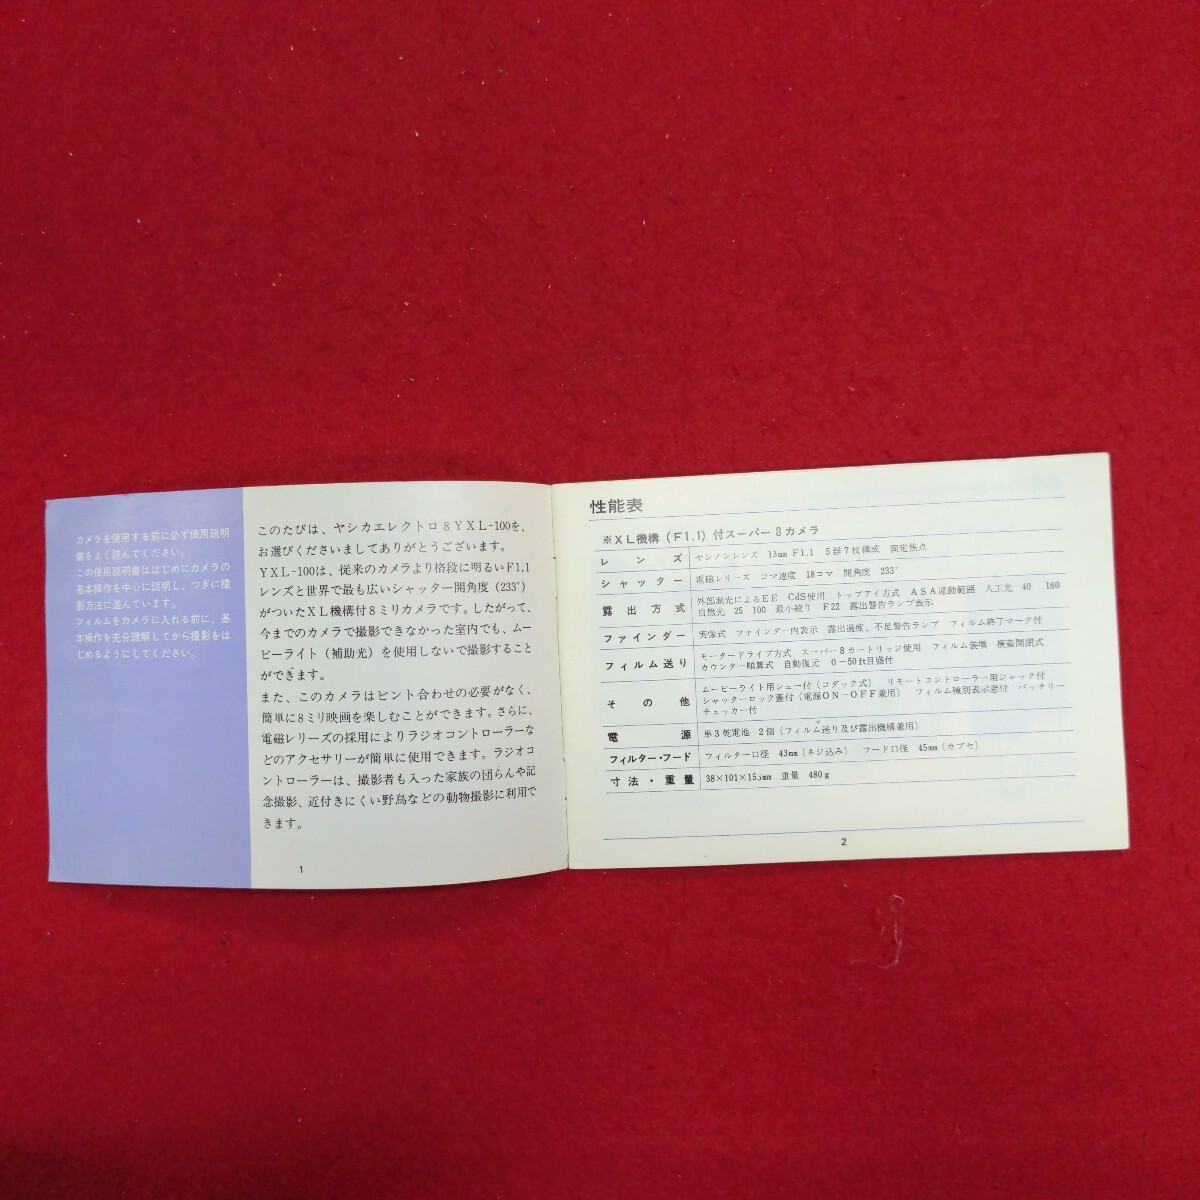 カメラを使用する前に必ず使用説明
書をよく読んでください。
この使用説明書ははじめにカメラの
基本操作を中心に説明し、つぎに撮
影方法に進んでいます。
フィルムをカメラに入れる前に、基
本操作を充分理解してから撮影をは
じめるようにしてください。
このたびは、ヤシカエレクトロ8YXL-100を、
お選びくださいましてありがとうございます。
YXL-100は、従来のカメラより格段に明るいF1.1
レンズと世界で最も広いシャッター開角度(233°)
がついたXL機構付8ミリカメラです。したがって、
今までのカメラで撮影できなかった室内でも、ムー
ビーライト(補助光)を使用しないで撮影すること
ができます。
また、このカメラはピント合わせの必要がなく、
簡単に8ミリ映画を楽しむことができます。さらに、
電磁レリーズの採用によりラジオコントローラーな
どのアクセサリーが簡単に使用できます。ラジオコ
ントローラーは、撮影者も入った家族の団らんや記
念撮影、近付きにくい野鳥などの動物撮影に利用で
きます。
1
性能表
※XL機構(F1.1)付スーパー8カメラ
レンズ ヤシノンレンズ 13mm F1.1 5群7枚構成 固定焦点
シャッター 電磁レリーズ コマ速度 18コマ 開角度 233°
露出方式 外部測光によるEE CdS使用 トップアイ方式 ASA連動範囲 人工光 40 160
自然光 25 100 最小絞り F22 露出警告ランプ表示
ファインダー 実像式 ファインダー内表示 露出過度、不足警告ランプ フィルム終了マーク付
フィルム送り モータードライブ方式 スーパー8カートリッジ使用 フィルム装填 横蓋開閉式
カウンター順算式 自動復元 0-50ft目盛付
その他 ムービーライト用シュー付(コダック式) リモートコントローラー用ジャック付
シャッターロック蓋付(電源ON-OFF兼用) フィルム種別表示窓付 バッテリー
チェッカー付
電源 単3乾電池 2個(フィルム送り及び露出機構兼用)
フィルター・フード フィルター口径 43mm(ネジ込み) フード口径 45mm(カブセ)
寸法・重量 38×101×155mm 重量 480g
2